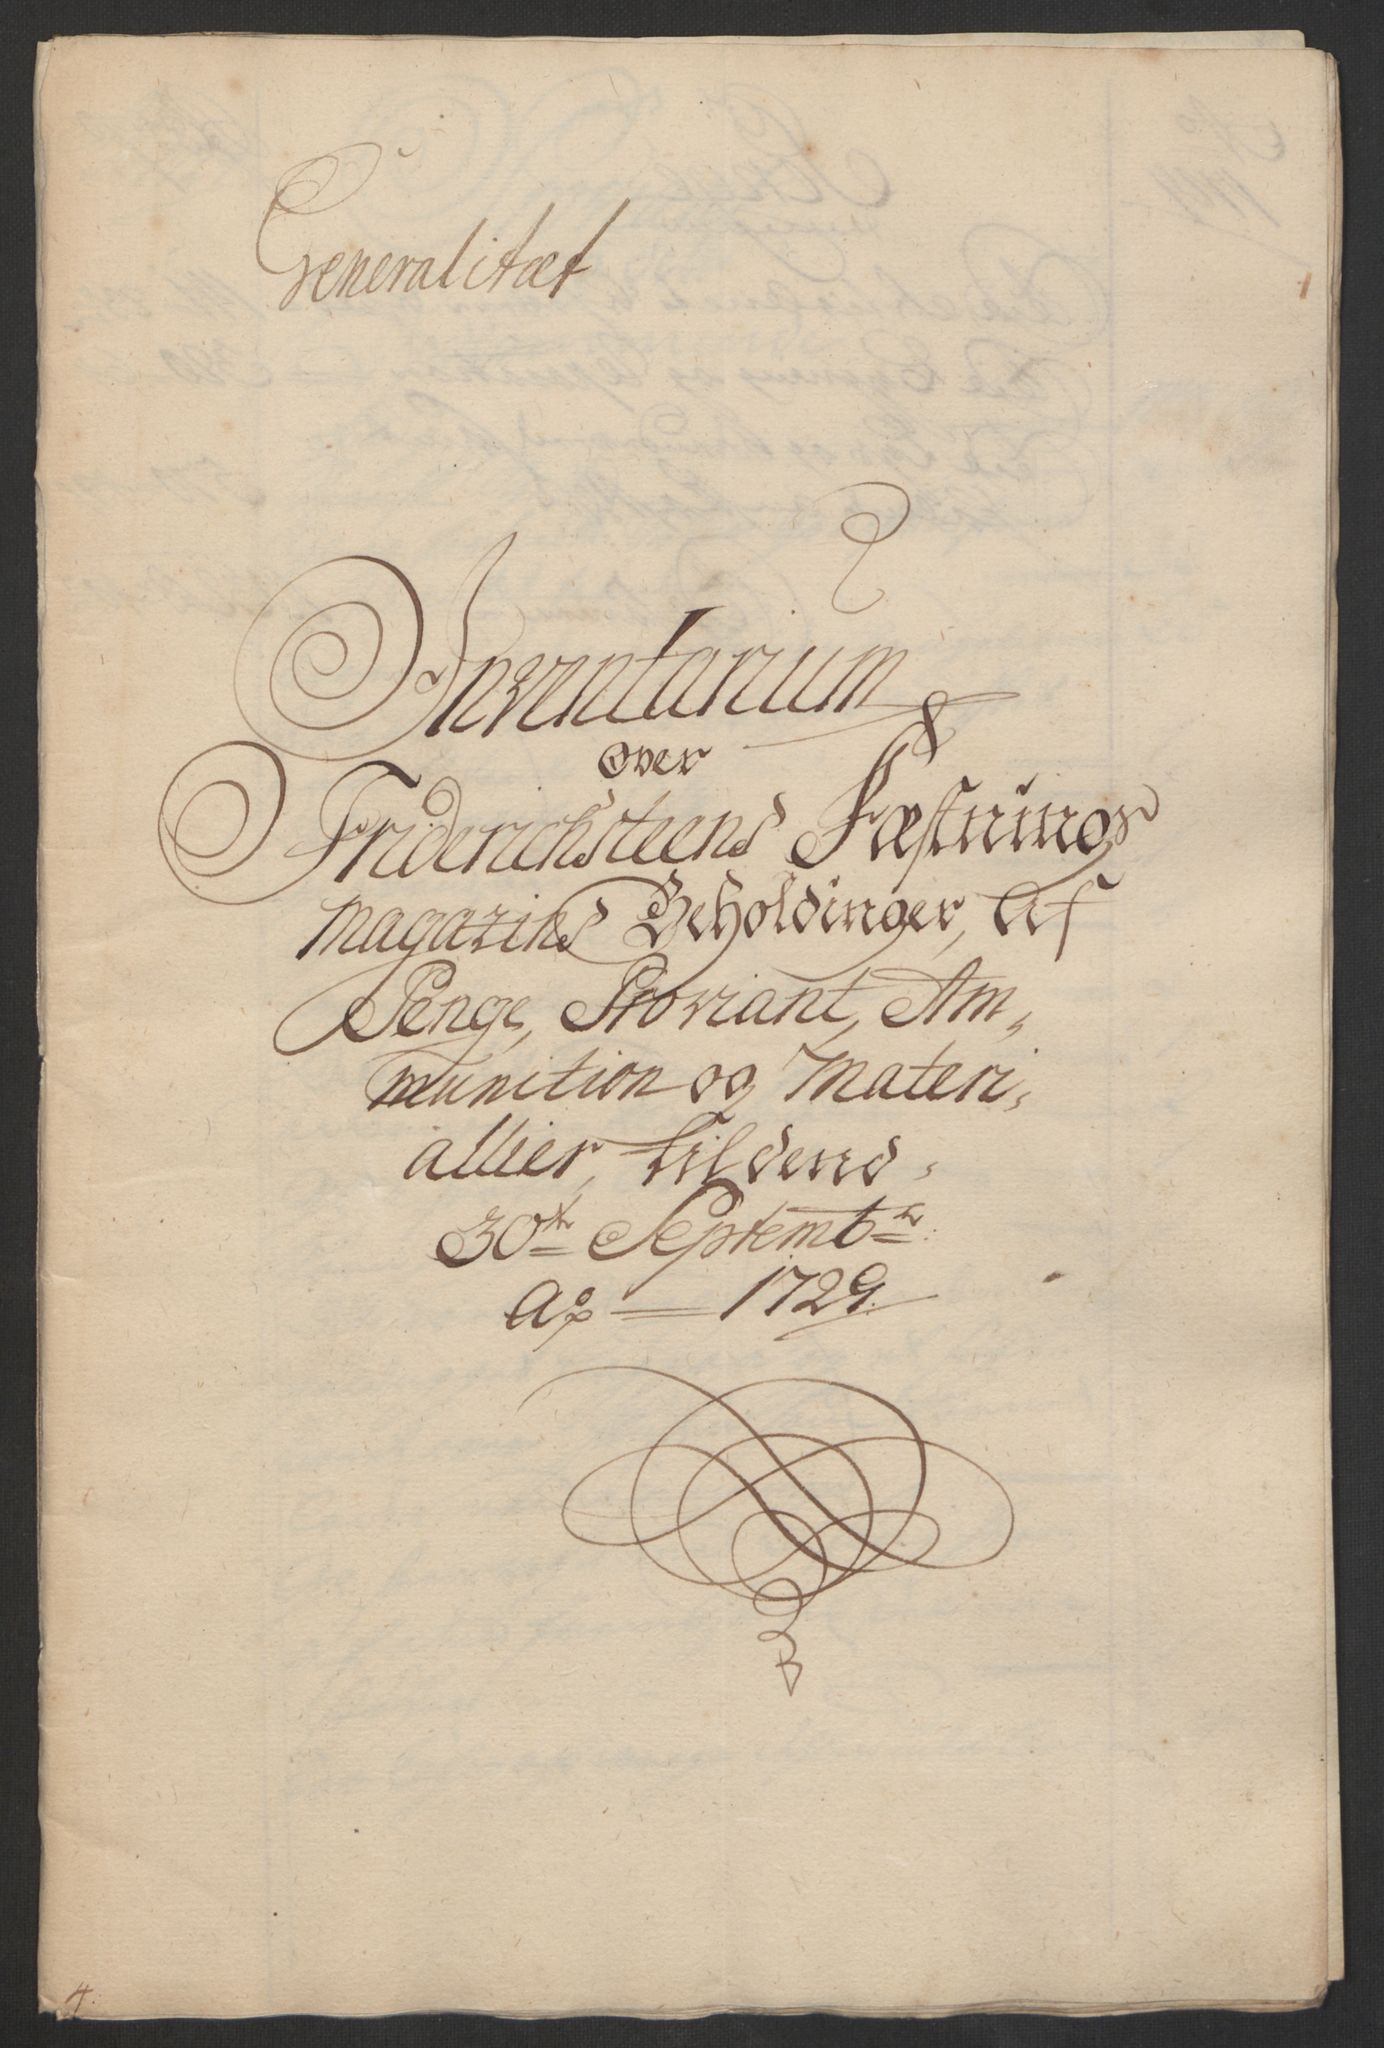 Generalitæt
Inventarium
over
Friderichsteens Fæstnings
Magazins Beholdinger, Af
Penge, Proviant, Am,,
munition og Materi,,
allier, til dend
30te Septembr:
Ao 1729.
4.